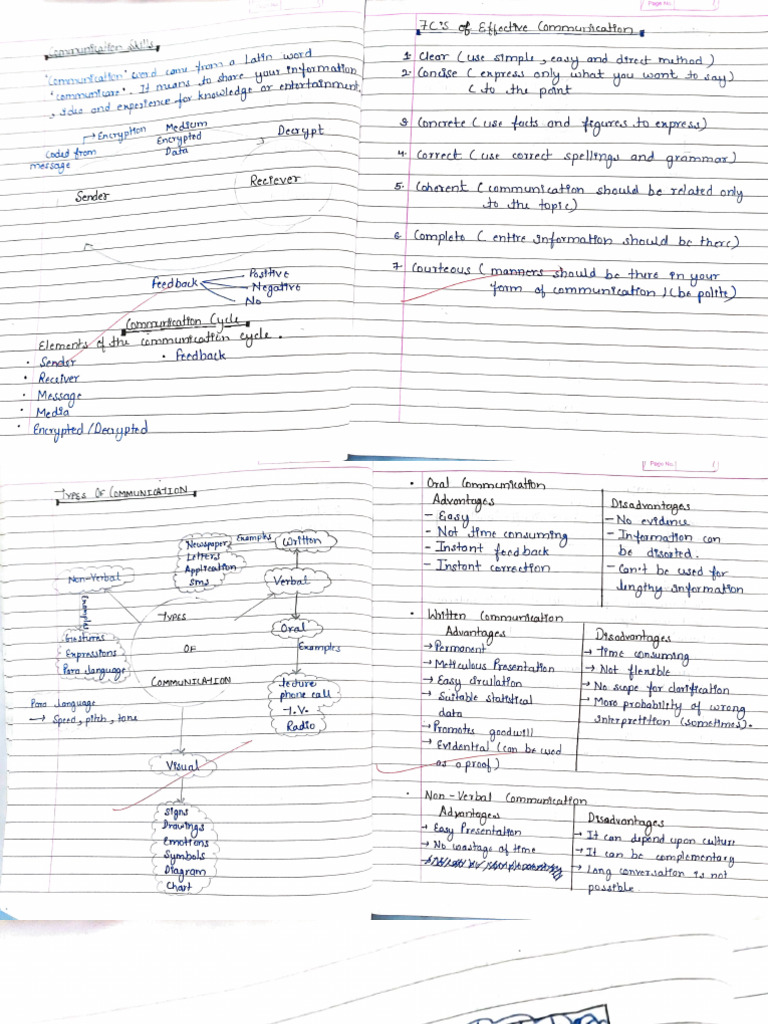 Page No.
Communication Skills
'Communication' word came from a Latin word
'communicare'. It means to share your information
, idea and experience for knowledge or entertainment.
Encryption
Medium
Encrypted
Data
Decrypt
Coded from
message
Sender
Reciever
Feedback
Positive
Negative
No
Communication Cycle
Elements of the communication cycle.
• Sender
• Feedback
• Receiver
• Message
• Media
• Encrypted/Decrypted
7C'S of Effective Communication
1. Clear (use simple, easy and direct method)
2. Concise (express only what you want to say)
(to the point
3. Concrete (use facts and figures to express)
4. Correct (use correct spellings and grammar)
5. Coherent (communication should be related only
to the topic)
6. Complete (entire information should be there)
7. Courteous (manners should be there in your
form of communication) (be polite)
TYPES OF COMMUNICATION
Non-Verbal
Examples
Gestures
Expressions
Para language
Para language
→ Speed, pitch, tone
TYPES
OF
COMMUNICATION
Newspaper
Letters
Application
sms
Examples
Written
Verbal
Oral
Examples
lecture
phone call
T.V.
Radio
Visual
Signs
Drawings
Emotions
Symbols
Diagram
Chart
Page No.
• Oral Communication
Advantages
- Easy
- Not time consuming
- Instant feedback
- Instant correction
Disadvantages
- No evidence
- Information can
be discated.
- Can't be used for
lengthy information
• Written Communication
Advantages
→ Permanent
→ Meticulous Presentation
→ Easy circulation
→ Suitable statistical
data
→ Promotes goodwill
→ Evidential (can be used
as a proof)
Disadvantages
→ Time consuming
→ Not flexible
→ No scope for clarification
→ More probability of wrong
interpretition (sometimes).
• Non-Verbal Communication
Advantages
→ Easy Presentation
→ No wastage of time
Disadvantages
→ It can depend upon culture
→ It can be complementary
→ Long conversation is not
possible.